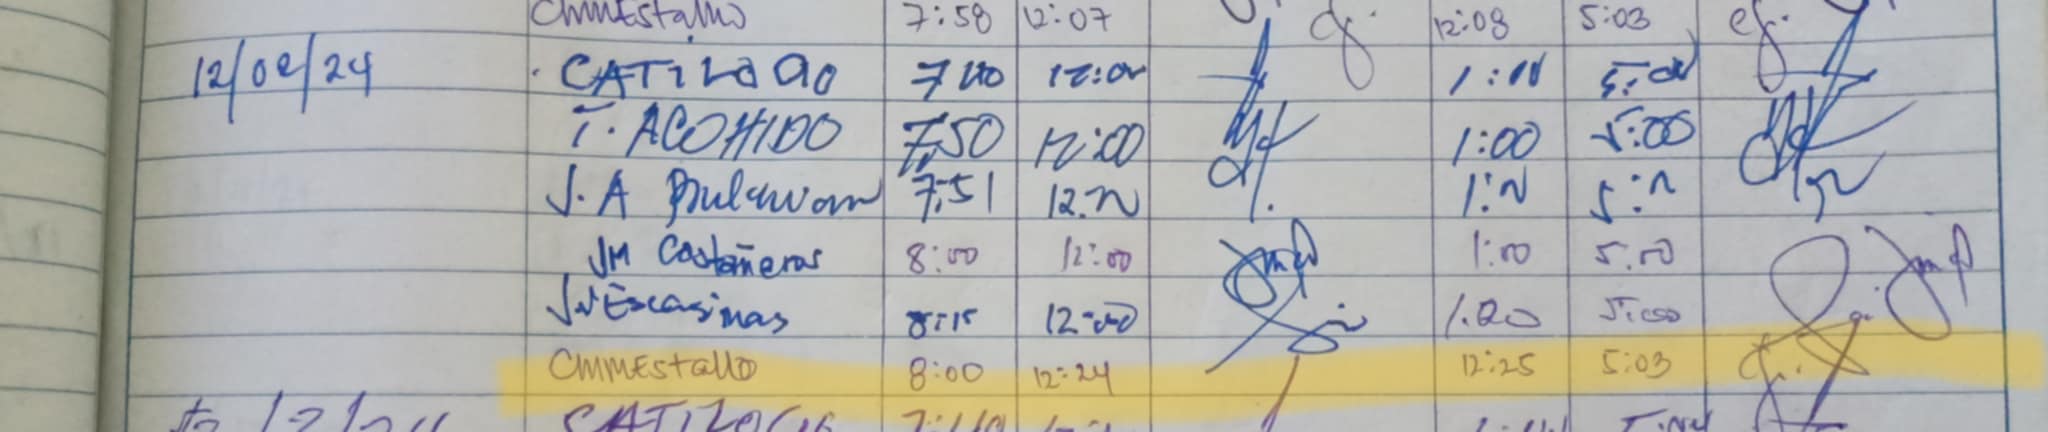 CMMEstallo 7:58 12:07 12:08 5:03
12/02/24 CATILOGO 7:40 12:00 1:00 5:00
T. ACOHIDO 7:50 12:00 1:00 5:00
J. A 7:51 12:N 1:N 5:N
JM Castañeros 8:00 12:00 1:00 5:00
Escasinas 8:15 12:00 1:20 5:00
CMMEstallo 8:00 12:24 12:25 5:03